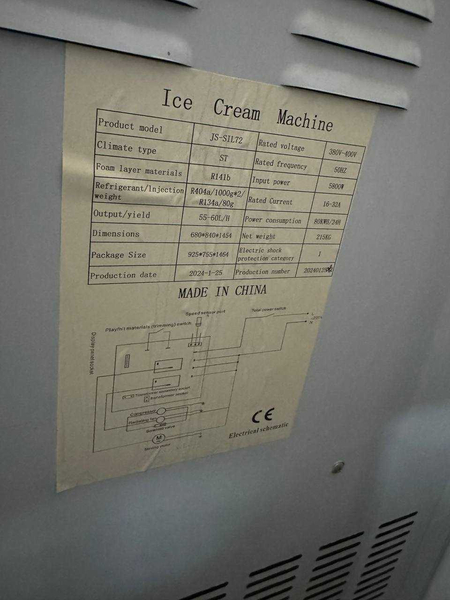 Ice Cream Machine
Product model JS-S1L72 Rated voltage 380V-400V
Climate type ST Rated frequency 50HZ
Foam layer materials R141b Input power 5800W
Refrigerant/Injection weight R404a/1000g*2/ R134a/80g Rated Current 16-32A
Output/yield 55-60L/H Power consumption 80KWH/24H
Dimensions 680*840*1454 Net weight 215KG
Package Size 925*755*1464 Electric shock protection category 1
Production date 2024-1-25 Production number
MADE IN CHINA
Total power switch
CE
Electrical schematic